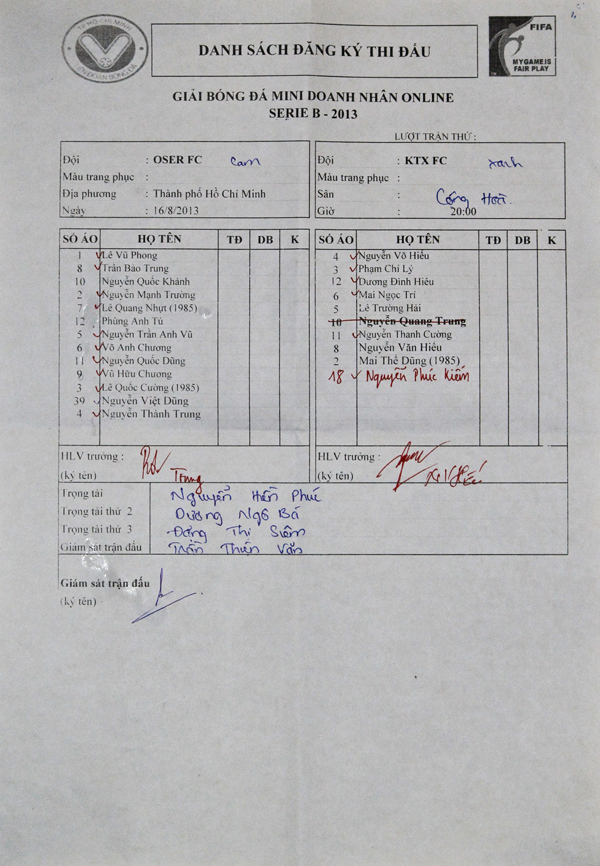 TP HỒ CHÍ MINH
LIÊN ĐOÀN BÓNG ĐÁ
DANH SÁCH ĐĂNG KÝ THI ĐẤU
FIFA
MY GAME IS
FAIR PLAY
GIẢI BÓNG ĐÁ MINI DOANH NHÂN ONLINE
SERIE B - 2013
LƯỢT TRẬN THỨ :
Đội : OSER FC Cam
Màu trang phục :
Địa phương : Thành phố Hồ Chí Minh
Ngày : 16/8/2013
Đội : KTX FC xanh
Màu trang phục :
Sân : Cộng Hoà.
Giờ : 20:00
SỐ ÁO HỌ TÊN TĐ DB K
1 Lê Vũ Phong
8 Trần Bảo Trung
10 Nguyễn Quốc Khánh
2 Nguyễn Mạnh Trường
7 Lê Quang Nhựt (1985)
12 Phùng Anh Tú
5 Nguyễn Trần Anh Vũ
6 Võ Anh Chương
11 Nguyễn Quốc Dũng
9 Vũ Hữu Chương
3 Lê Quốc Cường (1985)
39 Nguyễn Việt Dũng
4 Nguyễn Thành Trung
SỐ ÁO HỌ TÊN TĐ DB K
4 Nguyễn Võ Hiếu
3 Phạm Chí Lý
12 Dương Đình Hiếu
6 Mai Ngọc Trí
5 Lê Trường Hải
10 Nguyễn Quang Trung
11 Nguyễn Thanh Cường
8 Nguyễn Văn Hiếu
2 Mai Thế Dũng (1985)
18 Nguyễn Phúc Kiếm
HLV trưởng :
(ký tên) Trung
HLV trưởng :
(ký tên)
Trọng tài Nguyễn Hiền Phúc
Trọng tài thứ 2 Dương Ngô Bá
Trọng tài thứ 3 Đặng Thị Siêm
Giám sát trận đấu Trần Thiện Văn
Giám sát trận đấu
(ký tên)